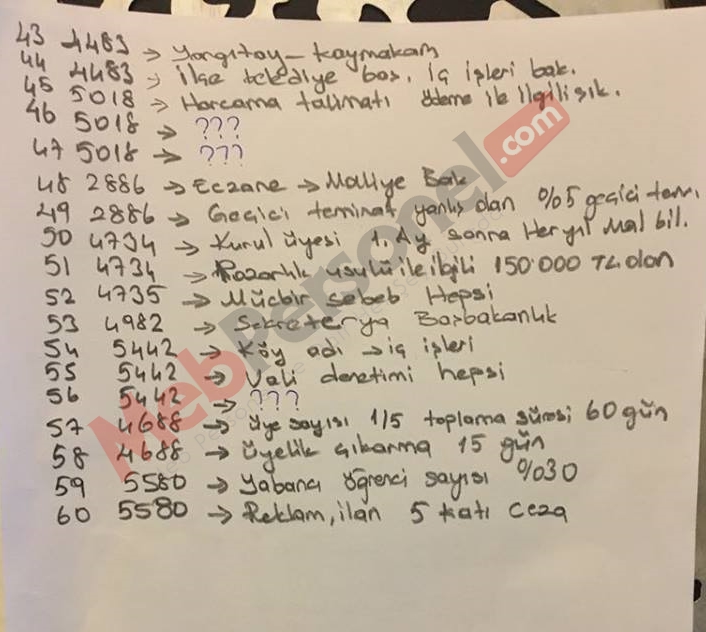 43 4483 → Yargıtay - Kaymakam
44 4483 → İlçe belediye baş. iç işleri bak.
45 5018 → Harcama talimatı ödeme ile ilgili şık.
46 5018 → ???
47 5018 → ???
48 2886 → Eczane → Maliye Bak
49 2886 → Geçici teminat yanlış olan %5 geçici temi.
50 4734 → Kurul üyesi 1. Ay sonra Her yıl Mal bil.
51 4734 → Pazarlık usulü ile ilgili 150.000 TL olan
52 4735 → Mücbir sebeb Hepsi
53 4982 → Sekreterya Başbakanlık
54 5442 → Köy adı → iç işleri
55 5442 → Vali denetimi hepsi
56 5442 → ???
57 4688 → Üye sayısı 1/5 toplama süresi 60 gün
58 4688 → Üyelik çıkarma 15 gün
59 5580 → Yabancı öğrenci sayısı %30
60 5580 → Reklam, ilan 5 katı ceza
MebPersonel.com